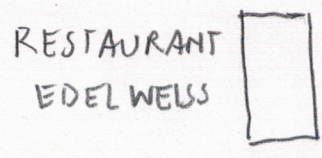 RESTAURANT
EDELWEISS